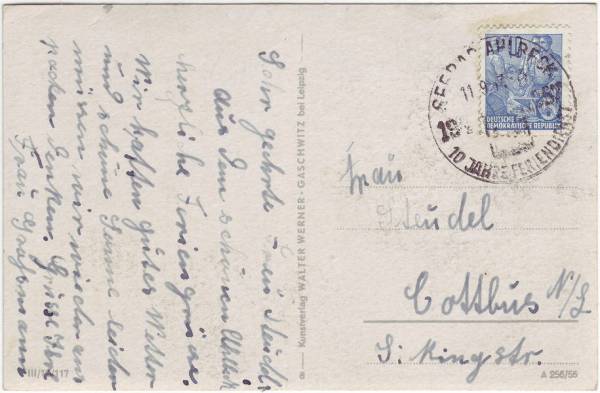 Sehr geehrte Frau Steudel,
aus dem schönen Ahlbeck
herzliche Feriengrüße.
Wir hatten gutes Wetter
und schöne Sonne leider
müssen wir wieder ans
packen denken. Grüsse Ihre
Frau Graßmann
III/18/117
Kunstverlag WALTER WERNER · GASCHWITZ bei Leipzig
SEEBAD AHLBECK
11.9.57
10 JAHRE FERIENDIENST
DEUTSCHE
DEMOKRATISCHE REPUBLIK
Frau
Steudel
Cottbus N/L
S: Ringstr.
A 256/56